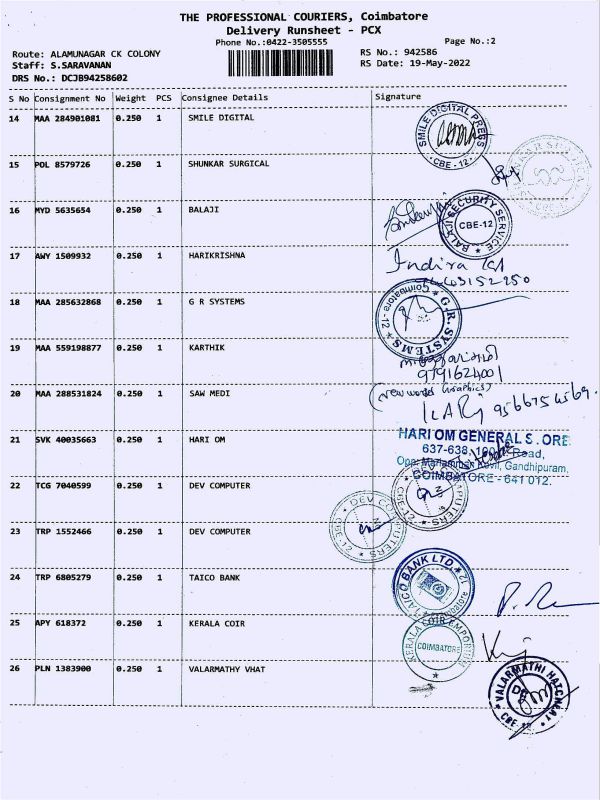 THE PROFESSIONAL COURIERS, Coimbatore
Delivery Runsheet - PCX
Phone No.:0422-3505555
Page No.:2
Route: ALAMUNAGAR CK COLONY
RS No.: 942586
Staff: S.SARAVANAN
RS Date: 19-May-2022
DRS No.: DCJB94258602
S No Consignment No Weight PCS Consignee Details Signature
14 MAA 284901081 0.250 1 SMILE DIGITAL
SMILE DIGITAL PRESS
CBE-12
15 POL 8579726 0.250 1 SHUNKAR SURGICAL
16 MYD 5635654 0.250 1 BALAJI
BALAJI SECURITY SERVICE
CBE-12
17 AWY 1509932 0.250 1 HARIKRISHNA
Indira
18 MAA 285632868 0.250 1 G R SYSTEMS
G.R. SYSTEMS
Coimbatore-12
19 MAA 559198877 0.250 1 KARTHIK
9791624001
20 MAA 288531824 0.250 1 SAW MEDI
(New world Graphics)
9566754569.
21 SVK 40035663 0.250 1 HARI OM
HARI OM GENERAL S ORE
637-638, Road,
Opp. Mariamman Kovil, Gandhipuram,
COIMBATORE - 641 012.
22 TCG 7040599 0.250 1 DEV COMPUTER
DEV COMPUTERS
CBE-12
23 TRP 1552466 0.250 1 DEV COMPUTER
DEV COMPUTERS
CBE-12
24 TRP 6805279 0.250 1 TAICO BANK
TAICO BANK LTD.
25 APY 618372 0.250 1 KERALA COIR
KERALA COIR EMPORIUM
COIMBATORE
26 PLN 1383900 0.250 1 VALARMATHY VHAT
VALARMATHI HATCHERY
CBE-12